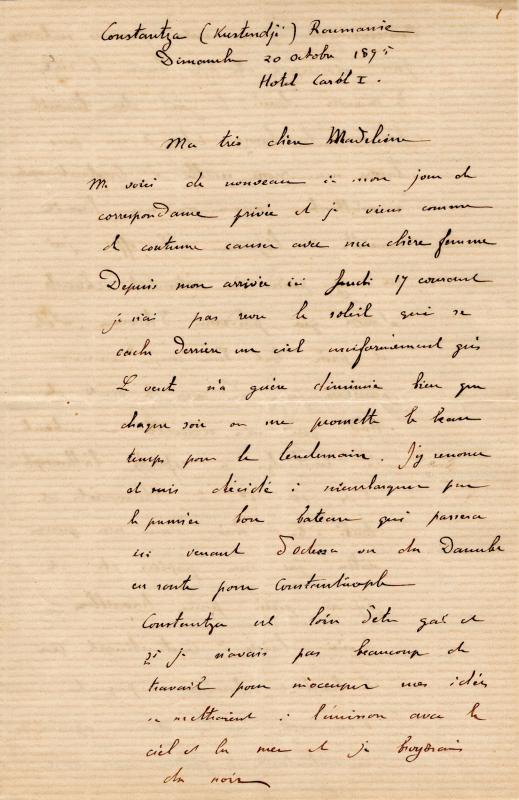 1
Constantza (Kustendjï) Roumanie
Dimanche 20 octobre 1895
Hotel Carol I.
Ma très chère Madeleine
Me voici de nouveau à mon jour de
correspondance privée et je viens comme
de coutume causer avec ma chère femme
Depuis mon arrivée ici Jeudi 17 courant
je n'ai pas revu le soleil qui se
cache derrière un ciel uniformément gris
Le vent n'a guère diminué bien que
chaque soir on me promette le beau
temps pour le lendemain. J'y renonce
et suis décidé à m'embarquer par
le premier bon bateau qui passera
ici venant d'Odessa ou du Danube
en route pour Constantinople
Constantza est loin d'être gai et
si je n'avais pas beaucoup de
travail pour m'occuper mes idées
se mettraient à l'unisson avec le
ciel et la mer et je broyerais
du noir